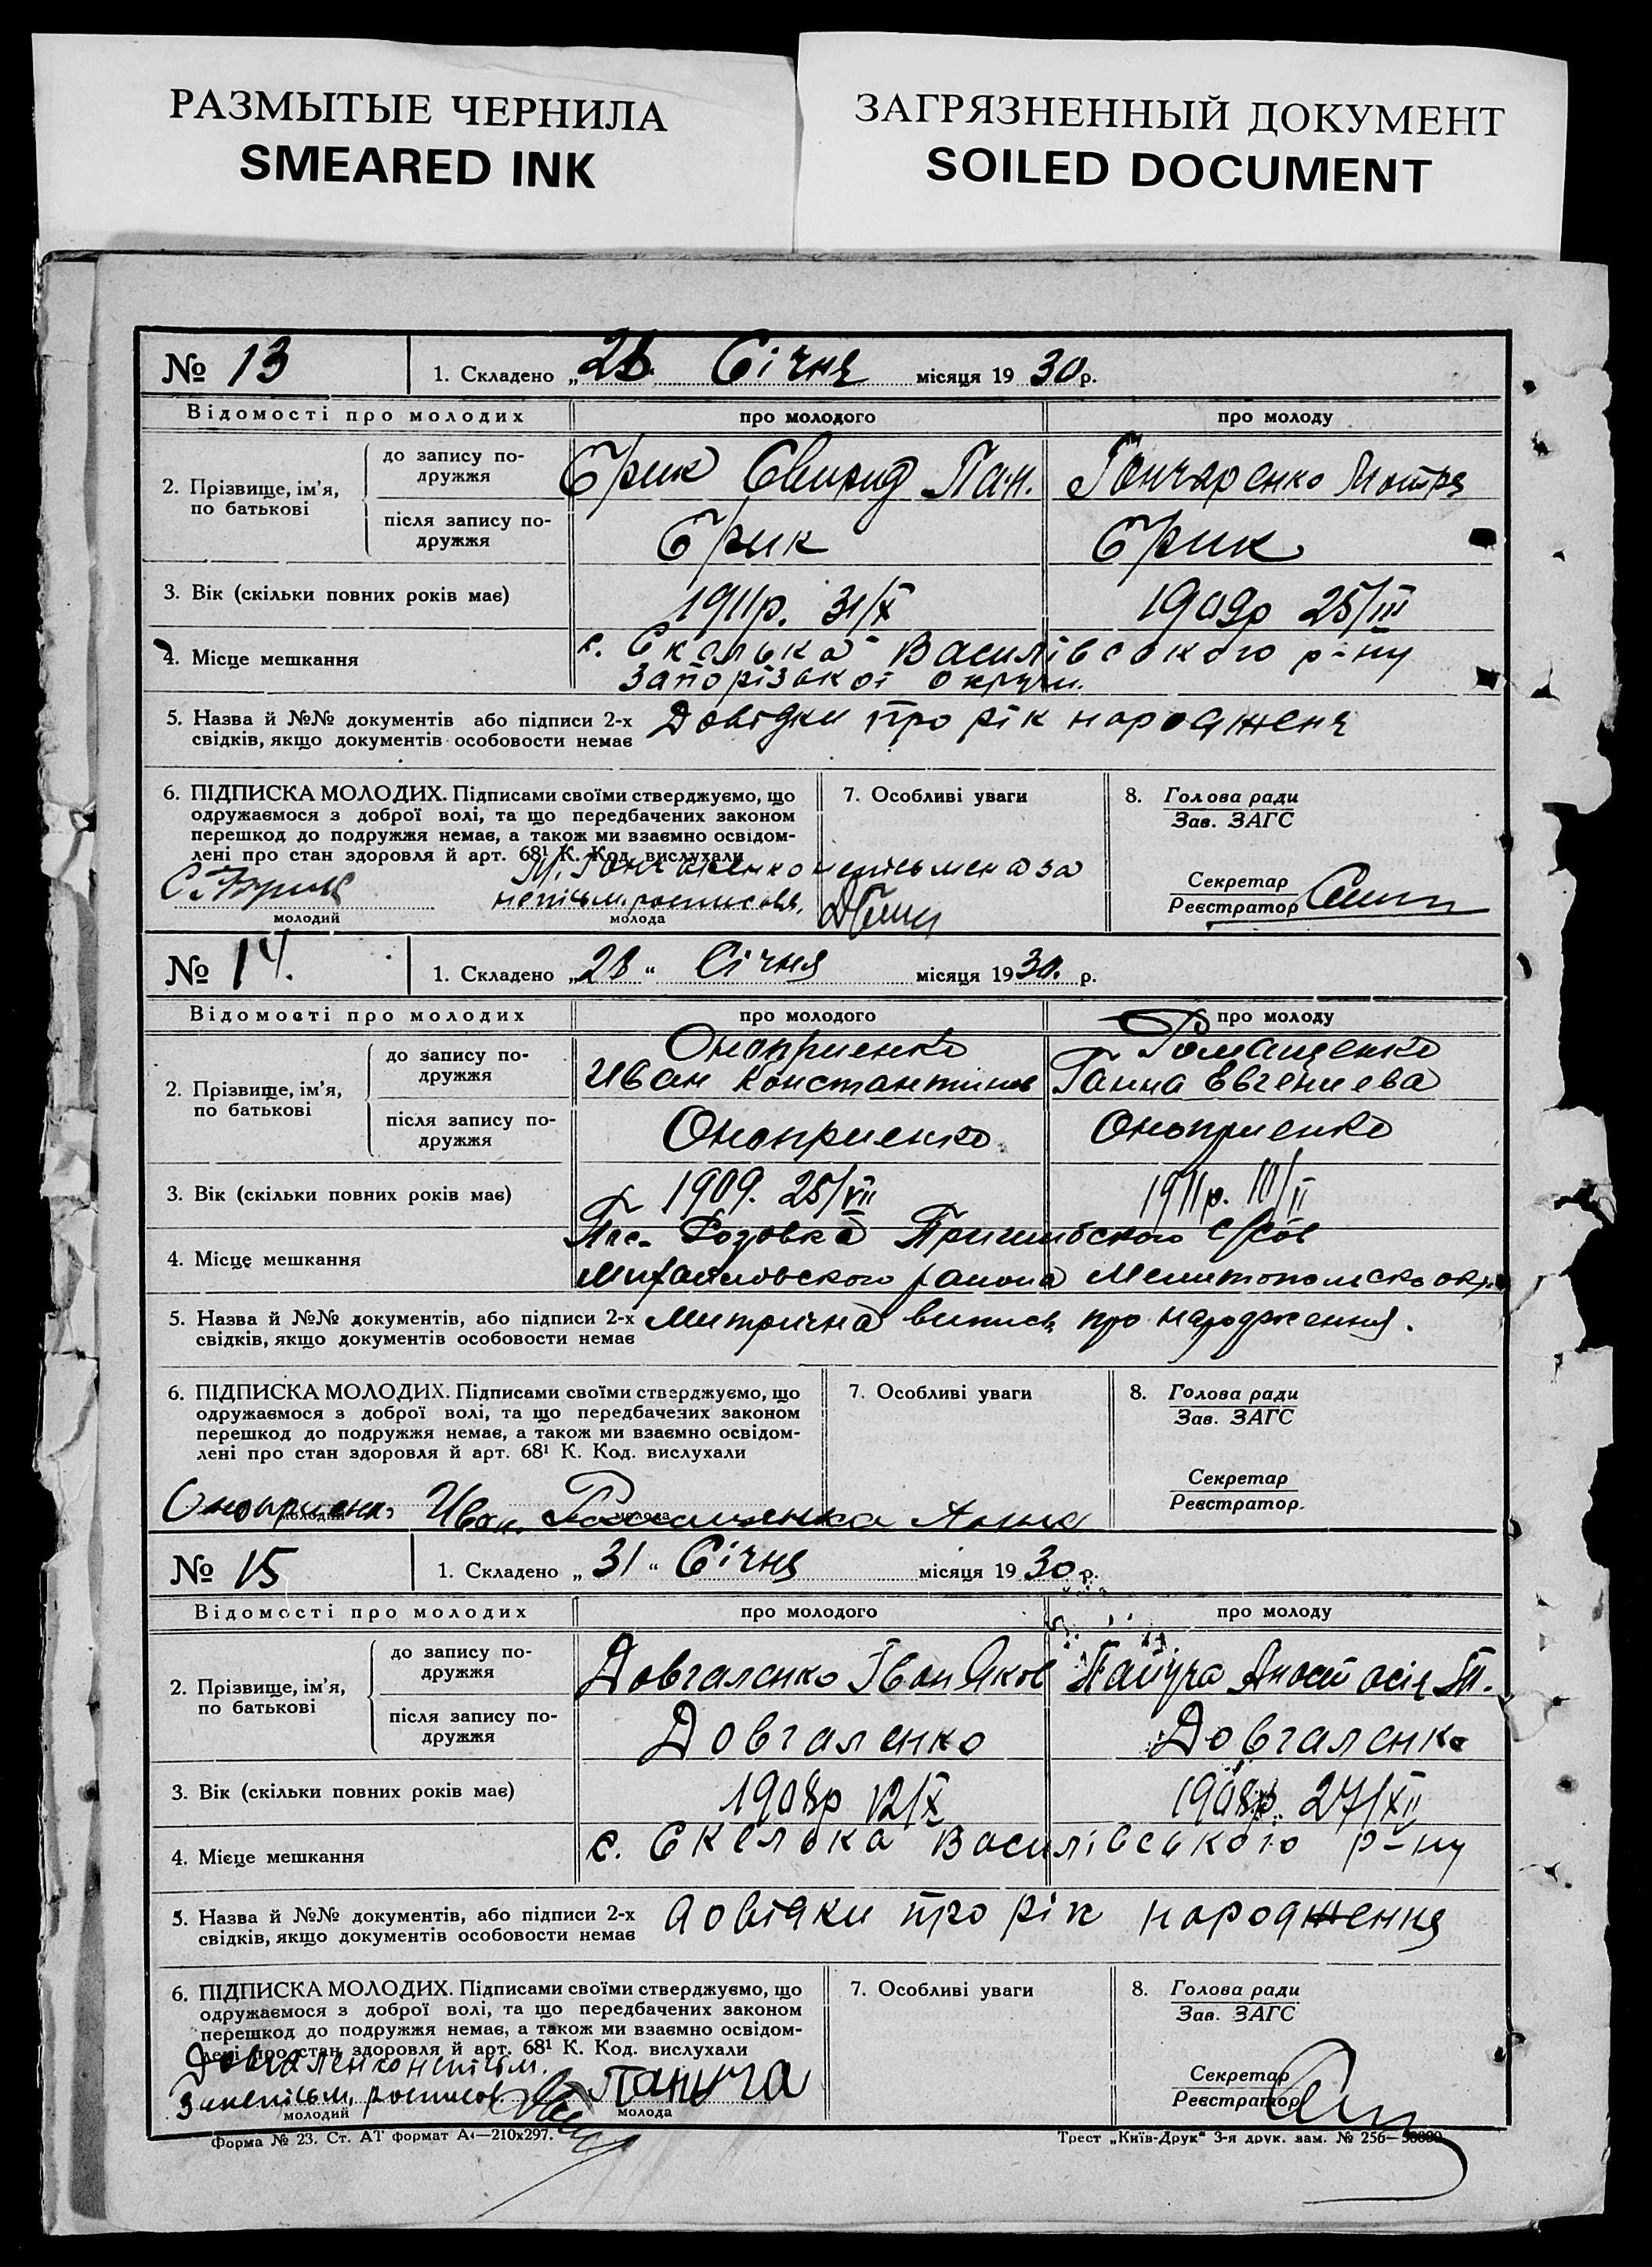 РАЗМЫТЫЕ ЧЕРНИЛА
SMEARED INK
ЗАГРЯЗНЕННЫЙ ДОКУМЕНТ
SOILED DOCUMENT
№ 13 1. Складено „28" Січня місяця 1930 р.
Відомості про молодих про молодого про молоду
2. Прізвище, ім'я, по батькові
до запису подружжя Єрик Свирид Пан. Гончаренко Мотря
після запису подружжя Єрик Єрик
3. Вік (скільки повних років має) 1911р. 31/X 1909р 25/III
4. Місце мешкання с. Скелька Василівського р-ну
Запорізької округи.
5. Назва й №№ документів або підписи 2-х Довідки про рік народженя
свідків, якщо документів особовости немає
6. ПІДПИСКА МОЛОДИХ. Підписами своїми стверджуємо, що
одружаємося з доброї волі, та що передбачених законом
перешкод до подружжя немає, а також ми взаємно освідом-
лені про стан здоровля й арт. 68¹ К. Код. вислухали
М. Гончаренко неписьмена за
непісьм. росписовя,
молодий молода
7. Особливі уваги
8. Голова ради
Зав. ЗАГС
Секретар
Реєстратор
№ 14. 1. Складено „28" Січня місяця 1930. р.
Відомості про молодих про молодого про молоду
2. Прізвище, ім'я, по батькові
до запису подружжя Оноприенко Ромащенко
Иван Константинов Ганна Евгениева
після запису подружжя Оноприенко Оноприенко
3. Вік (скільки повних років має) 1909. 25/VII 1911р. 10/II
4. Місце мешкання Пос. Розовка Пришибского
Михайловского района Мелитопольско окр.
5. Назва й №№ документів, або підписи 2-х Митрична випись про народження.
свідків, якщо документів особовости немає
6. ПІДПИСКА МОЛОДИХ. Підписами своїми стверджуємо, що
одружаємося з доброї волі, та що передбачених законом
перешкод до подружжя немає, а також ми взаємно освідом-
лені про стан здоровля й арт. 68¹ К. Код. вислухали
Оноприенко Иван. Ромащенка Анна
молодий молода
7. Особливі уваги
8. Голова ради
Зав. ЗАГС
Секретар
Реєстратор.
№ 15 1. Складено „31" Січня місяця 1930 р.
Відомості про молодих про молодого про молоду
2. Прізвище, ім'я, по батькові
до запису подружжя Довгаленко Іван Яков
після запису подружжя Довгаленко Довгаленко
3. Вік (скільки повних років має) 1908р 12/X 1908р. 27/XII
4. Місце мешкання с. Скелька Василівського р-ну
5. Назва й №№ документів, або підписи 2-х довідки про рік народження
свідків, якщо документів особовости немає
6. ПІДПИСКА МОЛОДИХ. Підписами своїми стверджуємо, що
одружаємося з доброї волі, та що передбачених законом
перешкод до подружжя немає, а також ми взаємно освідом-
лені про стан здоровля й арт. 68¹ К. Код. вислухали
Довгаленко непісьм.
За непісьм, росписов
молодий молода
7. Особливі уваги
8. Голова ради
Зав. ЗАГС
Секретар
Реєстратор
Форма № 23. Ст. АТ формат А4—210х297. Трест „Київ-Друк" 3-я друк. зам. № 256—50000